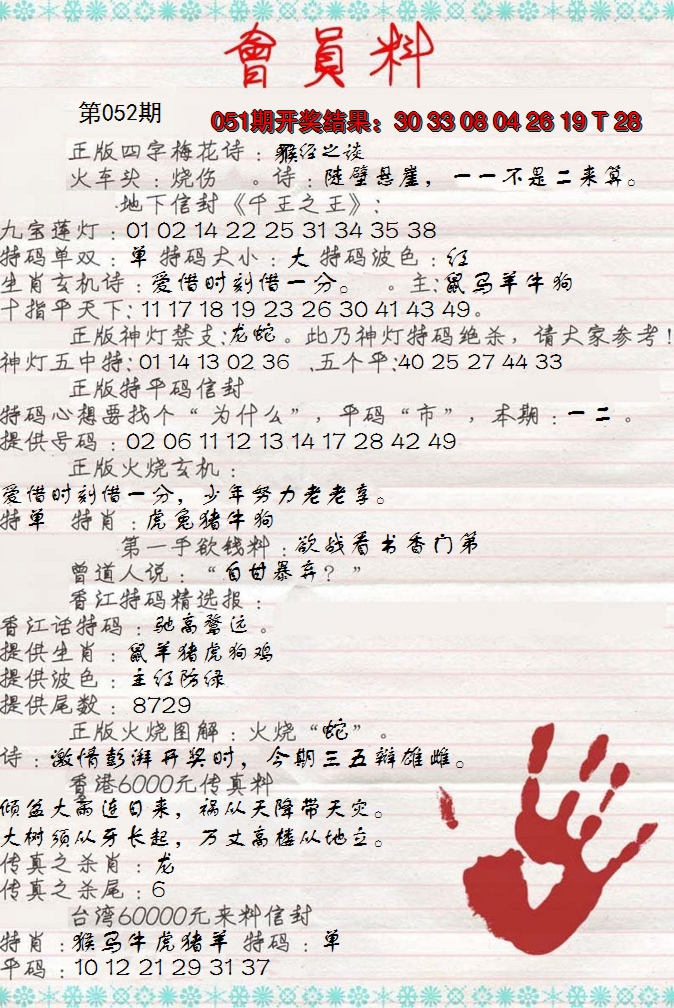 會員料
第052期
051期开奖结果：30 33 08 04 26 19 T 28
正版四字梅花诗：猴经之谈
火车头：烧伤 。诗：陡壁悬崖，一一不是二来算。
地下信封《千王之王》：
九宝莲灯：01 02 14 22 25 31 34 35 38
特码单双：单 特码大小：大 特码波色：红
生肖玄机诗：爱惜时刻惜一分。 。主：鼠马羊牛狗
十指平天下：11 17 18 19 23 26 30 41 43 49。
正版神灯禁支：龙蛇。此乃神灯特码绝杀，请大家参考！
神灯五中特：01 14 13 02 36 .五个平：40 25 27 44 33
正版特平码信封
特码心想要找个“为什么”，平码“市”，本期：一二。
提供号码：02 06 11 12 13 14 17 28 42 49
正版火烧玄机：
爱惜时刻惜一分，少年努力老老享。
特单 特肖：虎兔猪牛狗
第一手欲钱料：欲战看书香门第
曾道人说：“自甘暴弃？”
香江特码精选报：
香江话特码：驰高鹜远。
提供生肖：鼠羊猪虎狗鸡
提供波色：主红防绿
提供尾数：8729
正版火烧图解：火烧“蛇”。
诗：激情彭湃开奖时，今期三五辩雄雌。
香港6000元传真料
倾盆大雨连日来，祸从天降带天灾。
大树须从牙长起，万丈高楼从地立。
传真之杀肖：龙
传真之杀尾：6
台湾60000元来料信封
特肖：猴马牛虎猪羊 特码：单
平码：10 12 21 29 31 37